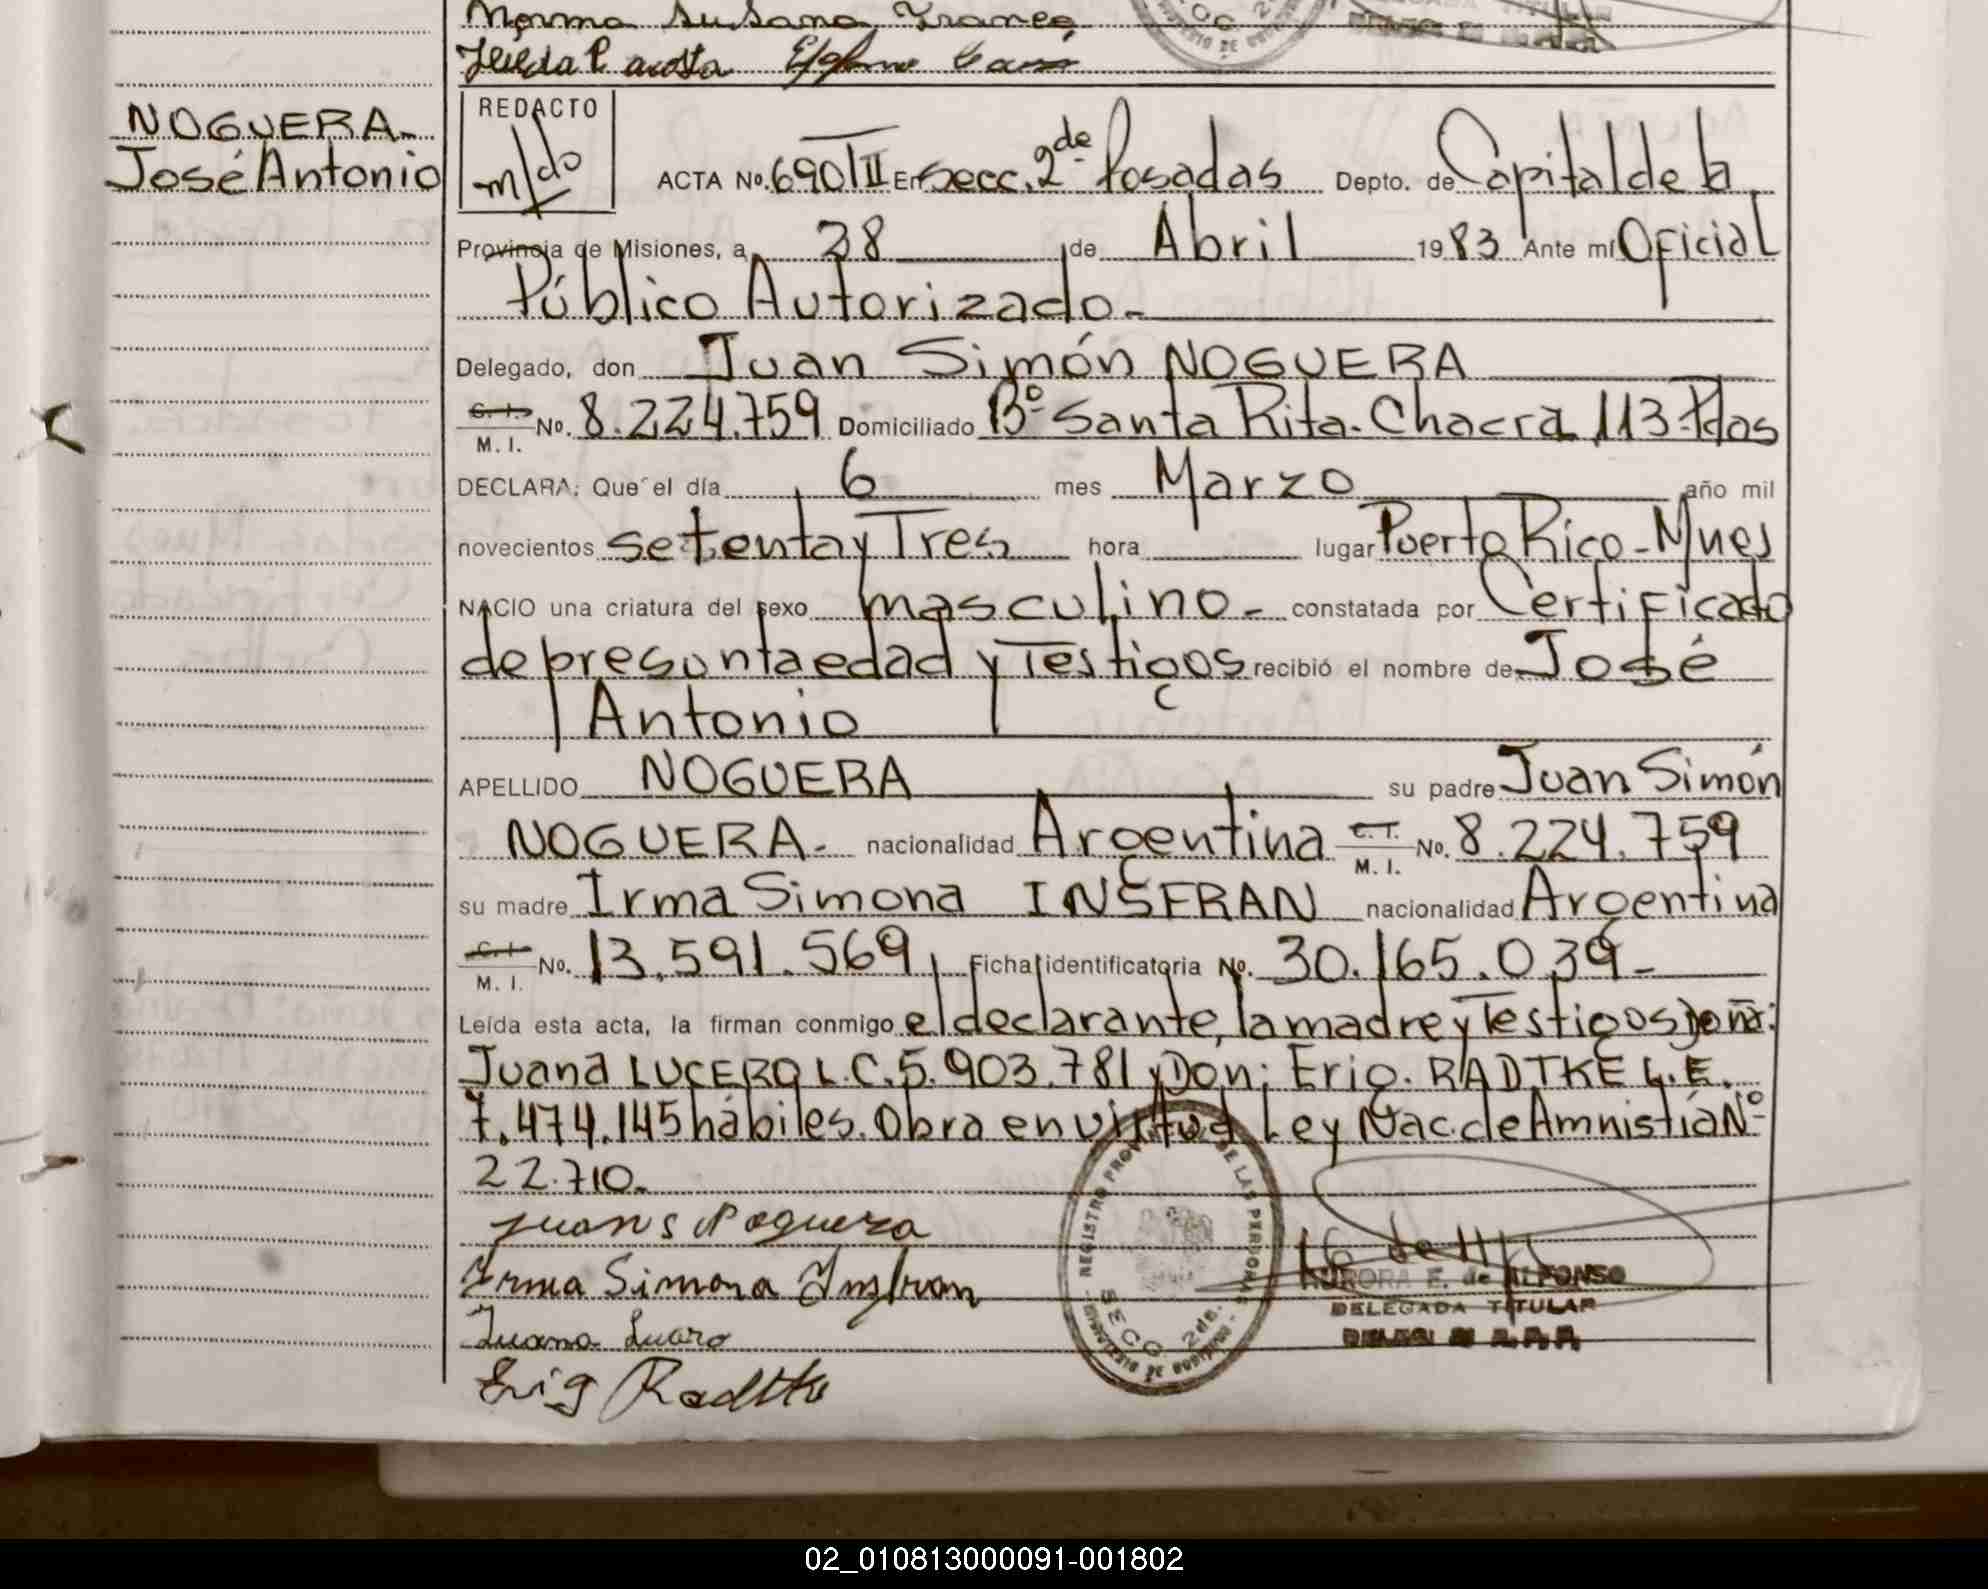 Norma Susana Franco
Hilda R acosta
NOGUERA-
José Antonio
REDACTO
ACTA No. 690/II En secc. 2de Posadas Depto. de Capital de la
Provincia de Misiones, a 28 de Abril 1983 Ante mí Oficial
Público Autorizado-
Delegado, don Juan Simón NOGUERA
C. I.
M. I. No. 8.224.759 Domiciliado Bº Santa Rita. Chacra 113-Pdas
DECLARA: Que el día 6 mes Marzo año mil
novecientos setenta y Tres hora lugar Puerto Rico-Mnes
NACIO una criatura del sexo masculino- constatada por Certificado
de presunta edad y Testigos recibió el nombre de José
Antonio
APELLIDO NOGUERA su padre Juan Simón
NOGUERA- nacionalidad Argentina C. I. M. I. No. 8.224.759
su madre Irma Simona INSFRAN nacionalidad Argentina
C. I. M. I. No. 13.591.569, Ficha identificatoria No. 30.165.039-
Leída esta acta, la firman conmigo el declarante, la madre y Testigos Doña:
Juana LUCERO L.C. 5.903.781 y Don: Erig. RADTKE L.E.
7.474.145 hábiles. Obra en virtud Ley Nac. de Amnistía Nº
22.710.
Juan S Noguera
Irma Simona Insfran
Juana Lucero
Erig Radtke
REGISTRO PROV DE LAS PERSONAS
SECC. 2de.
MINISTERIO DE GOBIERNO
AURORA E. de ALFONSO
DELEGADA TITULAR
02_010813000091-001802